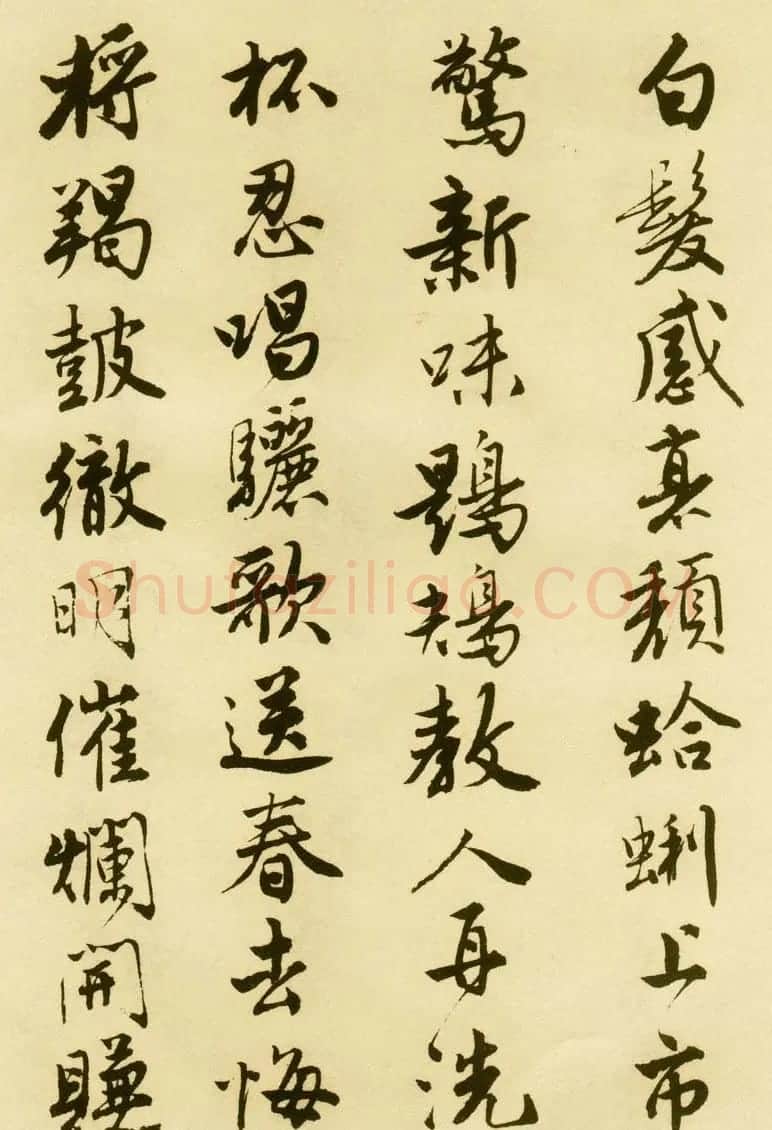 白髮感衰頹蛤蜊上市
驚新味鶗鴂教人再洗
杯忍唱驪歌送春去悔
將羯鼓徹明催爛開賺
Shufaziliao.COM